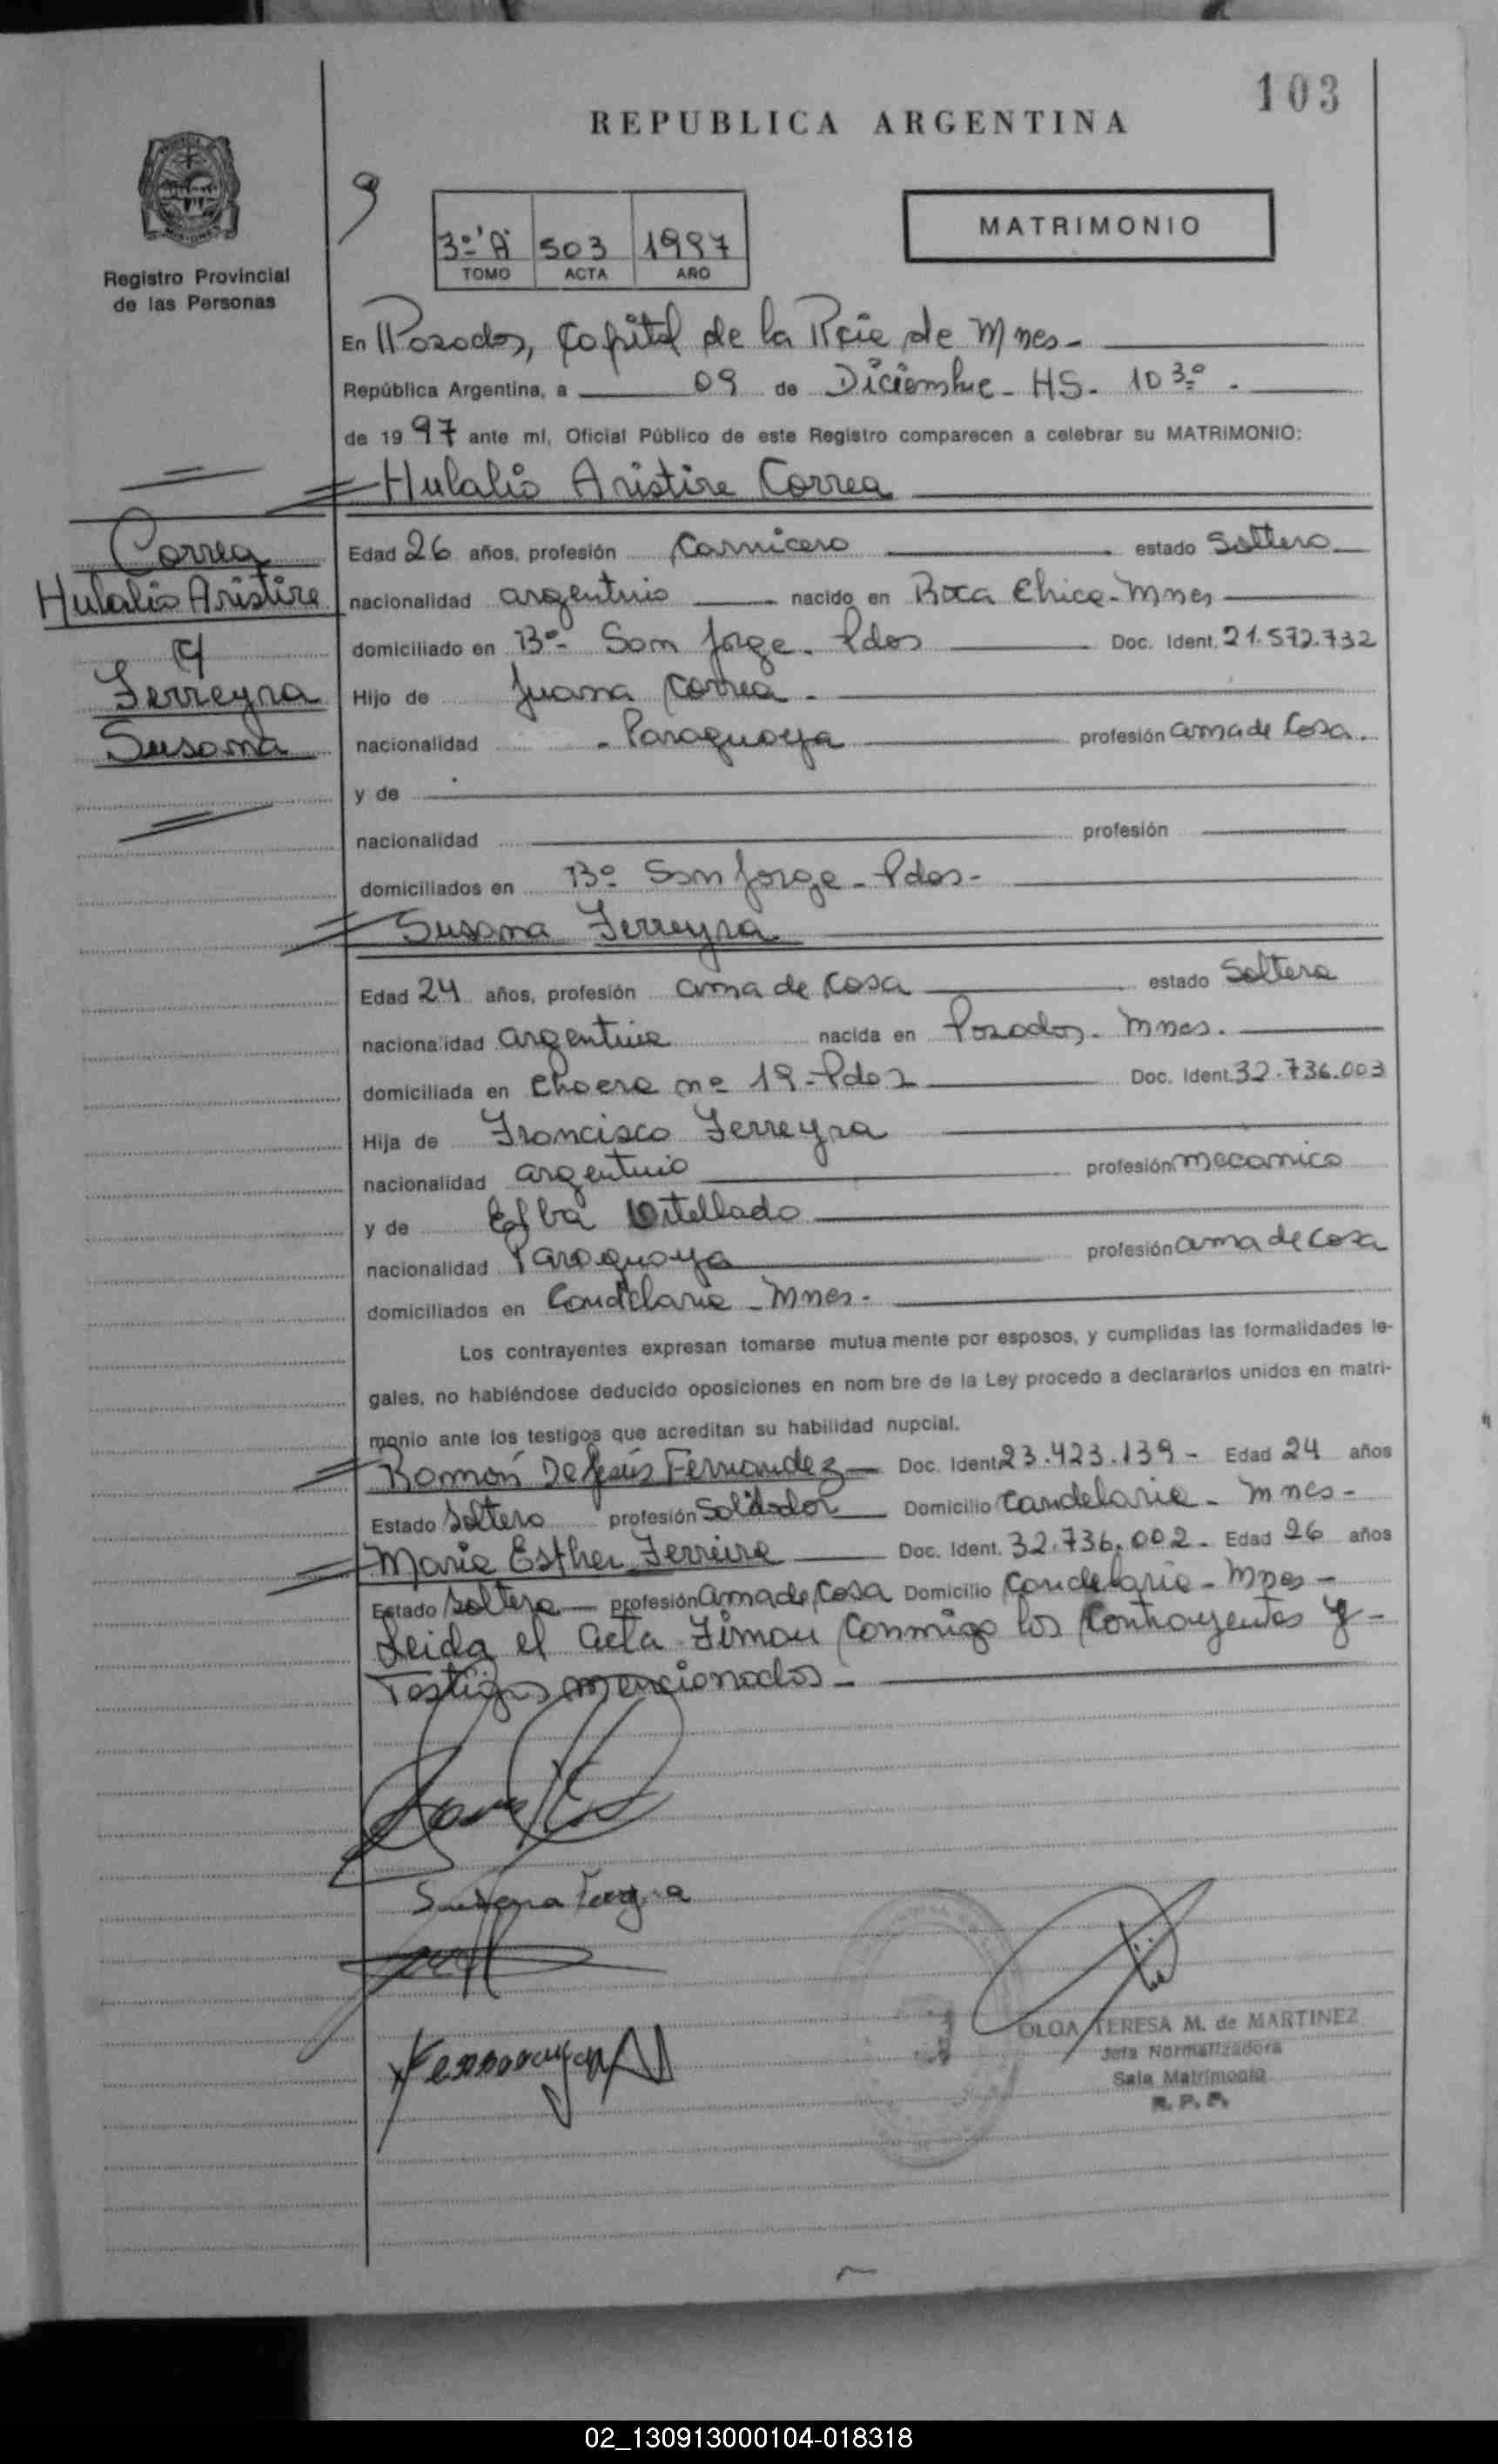 103
REPUBLICA ARGENTINA
MATRIMONIO
9
3º "A" 503 1997
TOMO ACTA AÑO
Registro Provincial
de las Personas
En Posadas, Capital de la Pcie de Mnes-
República Argentina, a 09 de Diciembre - HS. 10 3º.
de 1997 ante mí, Oficial Público de este Registro comparecen a celebrar su MATRIMONIO:
Hulalio Aristire Correa
Correa
Hulalio Aristire
c/
Ferreyra
Susana
Edad 26 años, profesión Carnicero estado Soltero
nacionalidad argentino nacido en Roca Chica - Mnes
domiciliado en Bº San Jorge. Pdas Doc. Ident. 21.572.732
Hijo de Juana Correa -
nacionalidad - Paraguaya profesión ama de Casa.
y de
nacionalidad profesión
domiciliados en Bº San Jorge - Pdas -
Susana Ferreyra
Edad 24 años, profesión ama de Casa estado Soltera
nacionalidad argentina nacida en Posadas - Mnes.
domiciliada en Chacra nº 19 - Pdas Doc. Ident. 32.736.003
Hija de Francisco Ferreyra
nacionalidad argentino profesión mecanico
y de Elba Vitellado
nacionalidad Paraguaya profesión ama de casa
domiciliados en Candelaria - Mnes.
Los contrayentes expresan tomarse mutua mente por esposos, y cumplidas las formalidades le-
gales, no habiéndose deducido oposiciones en nom bre de la Ley procedo a declararlos unidos en matri-
monio ante los testigos que acreditan su habilidad nupcial.
Ramón De Jesús Fernandez Doc. Ident. 23.423.139 - Edad 24 años
Estado Soltero profesión Soldador Domicilio Candelaria - Mnes -
Maria Esther Ferreira Doc. Ident. 32.736.002 - Edad 26 años
Estado Soltera profesión ama de Casa Domicilio Candelaria - Mnes -
Leida el acta firman conmigo los Contrayentes y -
Testigos mencionados -
Susana
OLGA TERESA M. de MARTINEZ
Jefa Normalizadora
Sala Matrimonio
R. P. P.
02_130913000104-018318